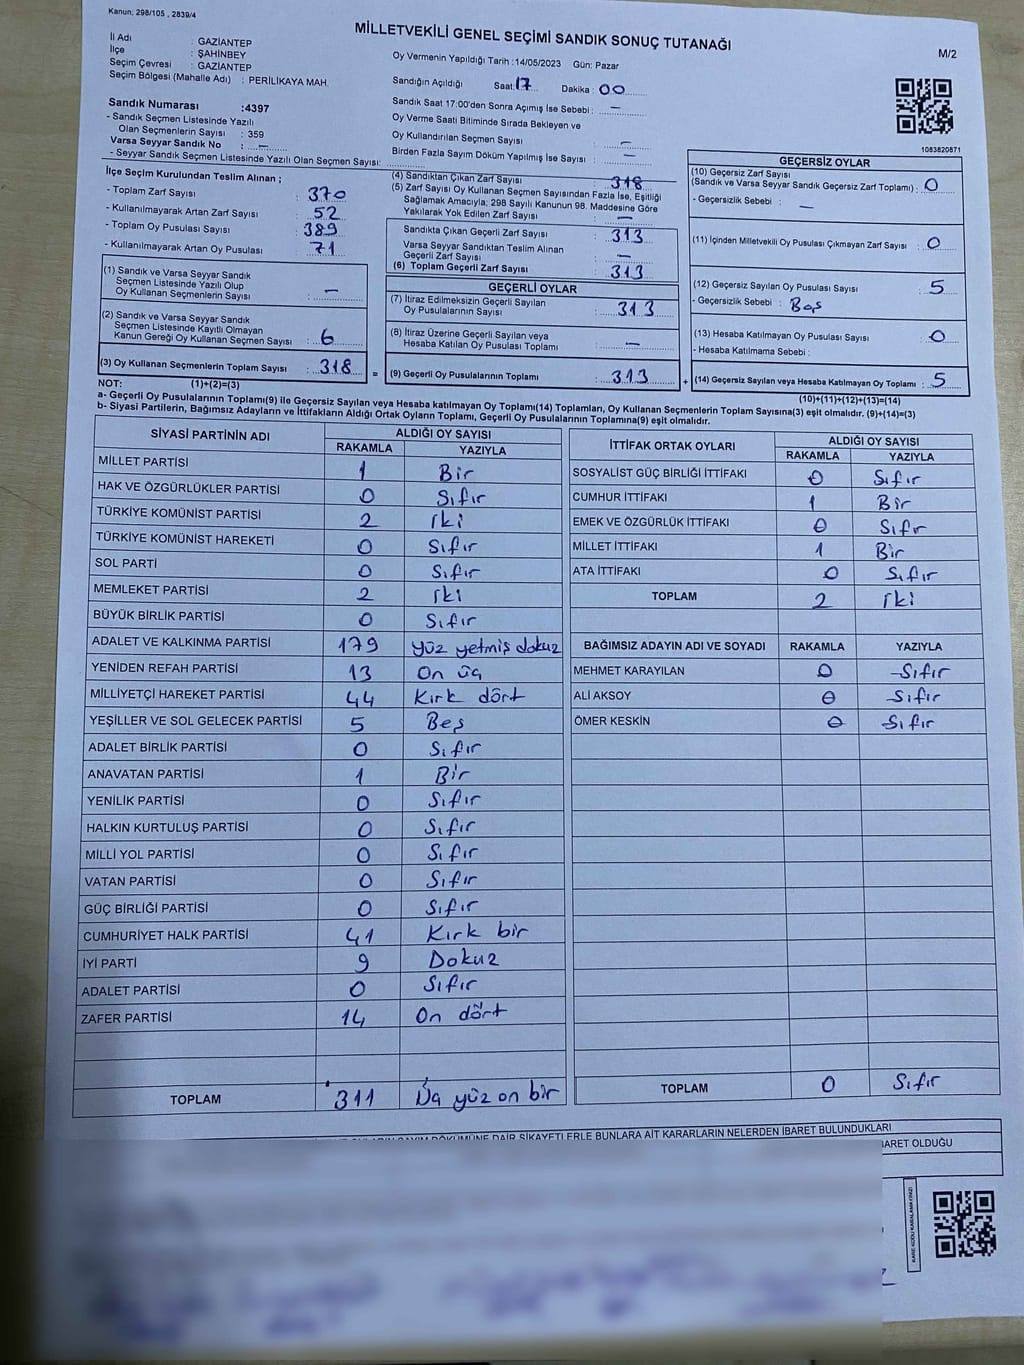 Kanun: 298/105 , 2839/4
MİLLETVEKİLİ GENEL SEÇİMİ SANDIK SONUÇ TUTANAĞI
M/2
İl Adı : GAZİANTEP
İlçe : ŞAHİNBEY
Seçim Çevresi : GAZİANTEP
Seçim Bölgesi (Mahalle Adı) : PERİLİKAYA MAH.
Oy Vermenin Yapıldığı Tarih :14/05/2023 Gün: Pazar
Sandığın Açıldığı Saat:17 Dakika : 00
Sandık Saat 17:00'den Sonra Açımış İse Sebebi : —
Oy Verme Saati Bitiminde Sırada Bekleyen ve
Oy Kullandırılan Seçmen Sayısı : —
Birden Fazla Sayım Döküm Yapılmış İse Sayısı : —
1083820871
Sandık Numarası :4397
- Sandık Seçmen Listesinde Yazılı
Olan Seçmenlerin Sayısı : 359
Varsa Seyyar Sandık No : —
- Seyyar Sandık Seçmen Listesinde Yazılı Olan Seçmen Sayısı:
İlçe Seçim Kurulundan Teslim Alınan ;
- Toplam Zarf Sayısı : 370
- Kullanılmayarak Artan Zarf Sayısı : 52
- Toplam Oy Pusulası Sayısı : 389
- Kullanılmayarak Artan Oy Pusulası : 71
(1) Sandık ve Varsa Seyyar Sandık
Seçmen Listesinde Yazılı Olup
Oy Kullanan Seçmenlerin Sayısı : —
(2) Sandık ve Varsa Seyyar Sandık
Seçmen Listesinde Kayıtlı Olmayan
Kanun Gereği Oy Kullanan Seçmen Sayısı : 6
(3) Oy Kullanan Seçmenlerin Toplam Sayısı : 318
(4) Sandıktan Çıkan Zarf Sayısı : 318
(5) Zarf Sayısı Oy Kullanan Seçmen Sayısından Fazla İse, Eşitliği
Sağlamak Amacıyla; 298 Sayılı Kanunun 98. Maddesine Göre
Yakılarak Yok Edilen Zarf Sayısı : —
Sandıkta Çıkan Geçerli Zarf Sayısı : 313
Varsa Seyyar Sandıktan Teslim Alınan
Geçerli Zarf Sayısı : —
(6) Toplam Geçerli Zarf Sayısı : 313
GEÇERLİ OYLAR
(7) İtiraz Edilmeksizin Geçerli Sayılan
Oy Pusulalarının Sayısı : 313
(8) İtiraz Üzerine Geçerli Sayılan veya
Hesaba Katılan Oy Pusulası Toplamı : —
= (9) Geçerli Oy Pusulalarının Toplamı : 313
GEÇERSİZ OYLAR
(10) Geçersiz Zarf Sayısı
(Sandık ve Varsa Seyyar Sandık Geçersiz Zarf Toplamı) : 0
- Geçersizlik Sebebi : —
(11) İçinden Milletvekili Oy Pusulası Çıkmayan Zarf Sayısı : 0
(12) Geçersiz Sayılan Oy Pusulası Sayısı : 5
- Geçersizlik Sebebi : Boş
(13) Hesaba Katılmayan Oy Pusulası Sayısı : 0
- Hesaba Katılmama Sebebi :
+ (14) Geçersiz Sayılan veya Hesaba Katılmayan Oy Toplamı : 5
NOT: (1)+(2)=(3)
(10)+(11)+(12)+(13)=(14)
a- Geçerli Oy Pusulalarının Toplamı(9) ile Geçersiz Sayılan veya Hesaba katılmayan Oy Toplamı(14) Toplamları, Oy Kullanan Seçmenlerin Toplam Sayısına(3) eşit olmalıdır. (9)+(14)=(3)
b- Siyasi Partilerin, Bağımsız Adayların ve İttifakların Aldığı Ortak Oyların Toplamı, Geçerli Oy Pusulalarının Toplamına(9) eşit olmalıdır.
SİYASİ PARTİNİN ADI ALDIĞI OY SAYISI
RAKAMLA YAZIYLA
MİLLET PARTİSİ 1 Bir
HAK VE ÖZGÜRLÜKLER PARTİSİ 0 Sıfır
TÜRKİYE KOMÜNİST PARTİSİ 2 iki
TÜRKİYE KOMÜNİST HAREKETİ 0 Sıfır
SOL PARTİ 0 Sıfır
MEMLEKET PARTİSİ 2 iki
BÜYÜK BİRLİK PARTİSİ 0 Sıfır
ADALET VE KALKINMA PARTİSİ 179 yüz yetmiş dokuz
YENİDEN REFAH PARTİSİ 13 On üç
MİLLİYETÇİ HAREKET PARTİSİ 44 Kırk dört
YEŞİLLER VE SOL GELECEK PARTİSİ 5 Beş
ADALET BİRLİK PARTİSİ 0 Sıfır
ANAVATAN PARTİSİ 1 Bir
YENİLİK PARTİSİ 0 Sıfır
HALKIN KURTULUŞ PARTİSİ 0 Sıfır
MİLLİ YOL PARTİSİ 0 Sıfır
VATAN PARTİSİ 0 Sıfır
GÜÇ BİRLİĞİ PARTİSİ 0 Sıfır
CUMHURİYET HALK PARTİSİ 41 Kırk bir
İYİ PARTİ 9 Dokuz
ADALET PARTİSİ 0 Sıfır
ZAFER PARTİSİ 14 On dört
TOPLAM 311 yüz on bir
İTTİFAK ORTAK OYLARI ALDIĞI OY SAYISI
RAKAMLA YAZIYLA
SOSYALİST GÜÇ BİRLİĞİ İTTİFAKI 0 Sıfır
CUMHUR İTTİFAKI 1 Bir
EMEK VE ÖZGÜRLÜK İTTİFAKI 0 Sıfır
MİLLET İTTİFAKI 1 Bir
ATA İTTİFAKI 0 Sıfır
TOPLAM 2 iki
BAĞIMSIZ ADAYIN ADI VE SOYADI RAKAMLA YAZIYLA
MEHMET KARAYILAN 0 Sıfır
ALİ AKSOY 0 Sıfır
ÖMER KESKİN 0 Sıfır
TOPLAM 0 Sıfır
DÖKÜMÜNE DAİR ŞİKAYETLERLE BUNLARA AİT KARARLARIN NELERDEN İBARET BULUNDUKLARI
BARET OLDUĞU